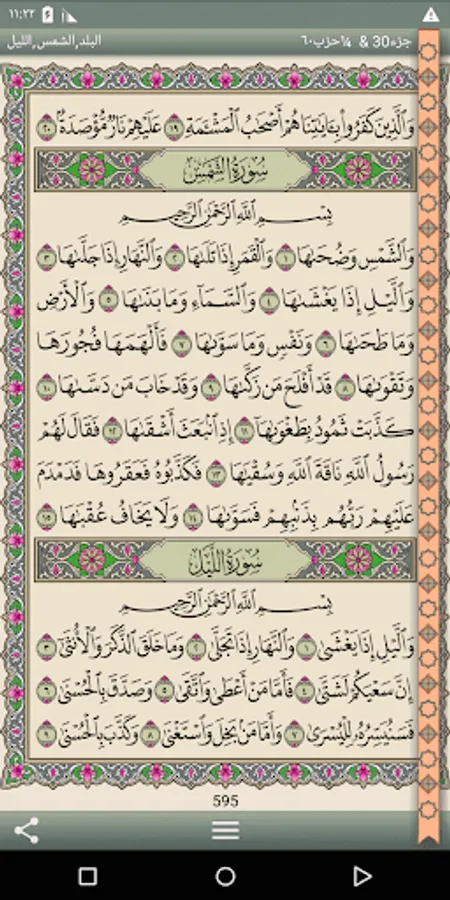 ١١:٢٢
جزء30 & ¼حزب٦٠
البلد,الشمس,الليل
وَالَّذِينَ كَفَرُوا۟ بِـَٔايَـٰتِنَا هُمْ أَصْحَـٰبُ الْمَشْـَٔمَةِ ١٩ عَلَيْهِمْ نَارٌ مُّؤْصَدَةٌۢ ٢٠
سُورَةُ الشَّمْسِ
بِسْمِ اللَّهِ الرَّحْمَـٰنِ الرَّحِيمِ
وَالشَّمْسِ وَضُحَىٰهَا ١ وَالْقَمَرِ إِذَا تَلَىٰهَا ٢ وَالنَّهَارِ إِذَا جَلَّىٰهَا ٣
وَالَّيْلِ إِذَا يَغْشَىٰهَا ٤ وَالسَّمَآءِ وَمَا بَنَىٰهَا ٥ وَالْأَرْضِ
وَمَا طَحَىٰهَا ٦ وَنَفْسٍ وَمَا سَوَّىٰهَا ٧ فَأَلْهَمَهَا فُجُورَهَا
وَتَقْوَىٰهَا ٨ قَدْ أَفْلَحَ مَن زَكَّىٰهَا ٩ وَقَدْ خَابَ مَن دَسَّىٰهَا ١٠
كَذَّبَتْ ثَمُودُ بِطَغْوَىٰهَآ ١١ إِذِ انۢبَعَثَ أَشْقَىٰهَا ١٢ فَقَالَ لَهُمْ
رَسُولُ اللَّهِ نَاقَةَ اللَّهِ وَسُقْيَـٰهَا ١٣ فَكَذَّبُوهُ فَعَقَرُوهَا فَدَمْدَمَ
عَلَيْهِمْ رَبُّهُم بِذَنۢبِهِمْ فَسَوَّىٰهَا ١٤ وَلَا يَخَافُ عُقْبَـٰهَا ١٥
سُورَةُ اللَّيْلِ
بِسْمِ اللَّهِ الرَّحْمَـٰنِ الرَّحِيمِ
وَالَّيْلِ إِذَا يَغْشَىٰ ١ وَالنَّهَارِ إِذَا تَجَلَّىٰ ٢ وَمَا خَلَقَ الذَّكَرَ وَالْأُنثَىٰٓ ٣
إِنَّ سَعْيَكُمْ لَشَتَّىٰ ٤ فَأَمَّا مَنْ أَعْطَىٰ وَاتَّقَىٰ ٥ وَصَدَّقَ بِالْحُسْنَىٰ ٦
فَسَنُيَسِّرُهُۥ لِلْيُسْرَىٰ ٧ وَأَمَّا مَنۢ بَخِلَ وَاسْتَغْنَىٰ ٨ وَكَذَّبَ بِالْحُسْنَىٰ ٩
595